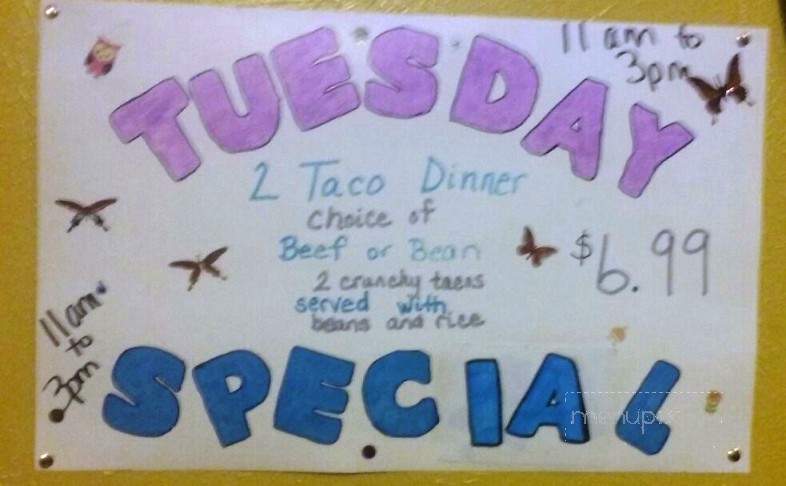 TUESDAY
11 am to
3pm
2 Taco Dinner
choice of
Beef or Bean
2 crunchy tacos
served with
beans and rice
$6.99
11am
to
3pm
SPECIAL